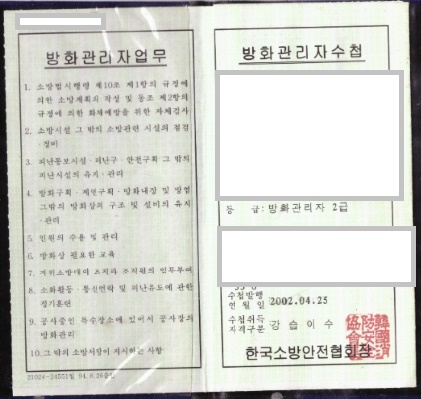 방화관리자업무
1. 소방법시행령 제10조 제1항의 규정에
의한 소방계획의 작성 및 동조 제2항의
규정에 의한 화재예방을 위한 자체검사
2. 소방시설 그 밖의 소방관련 시설의 점검
·정비
3. 피난통보시설·피난구·안전구획 그 밖의
피난시설의 유지·관리
4. 방화구획·제연구획·방화내장 및 방염
그밖의 방화상의 구조 및 설비의 유지
·관리
5. 인원의 수용 및 관리
6. 방화상 필요한 교육
7. 자위소방대의 조직과 조직원의 임무부여
8. 소화활동·통신연락 및 피난유도에 관한
정기훈련
9. 공사중인 특수장소에 있어서 공사장의
방화관리
10. 그 밖의 소방서장이 지시하는 사항
21024-24551일 94.8.26승인
방화관리자수첩
등 급: 방화관리자 2급
수첩발행
연 월 일 2002.04.25
수첩취득
자격구분 강습이수
한국소방안전협회장